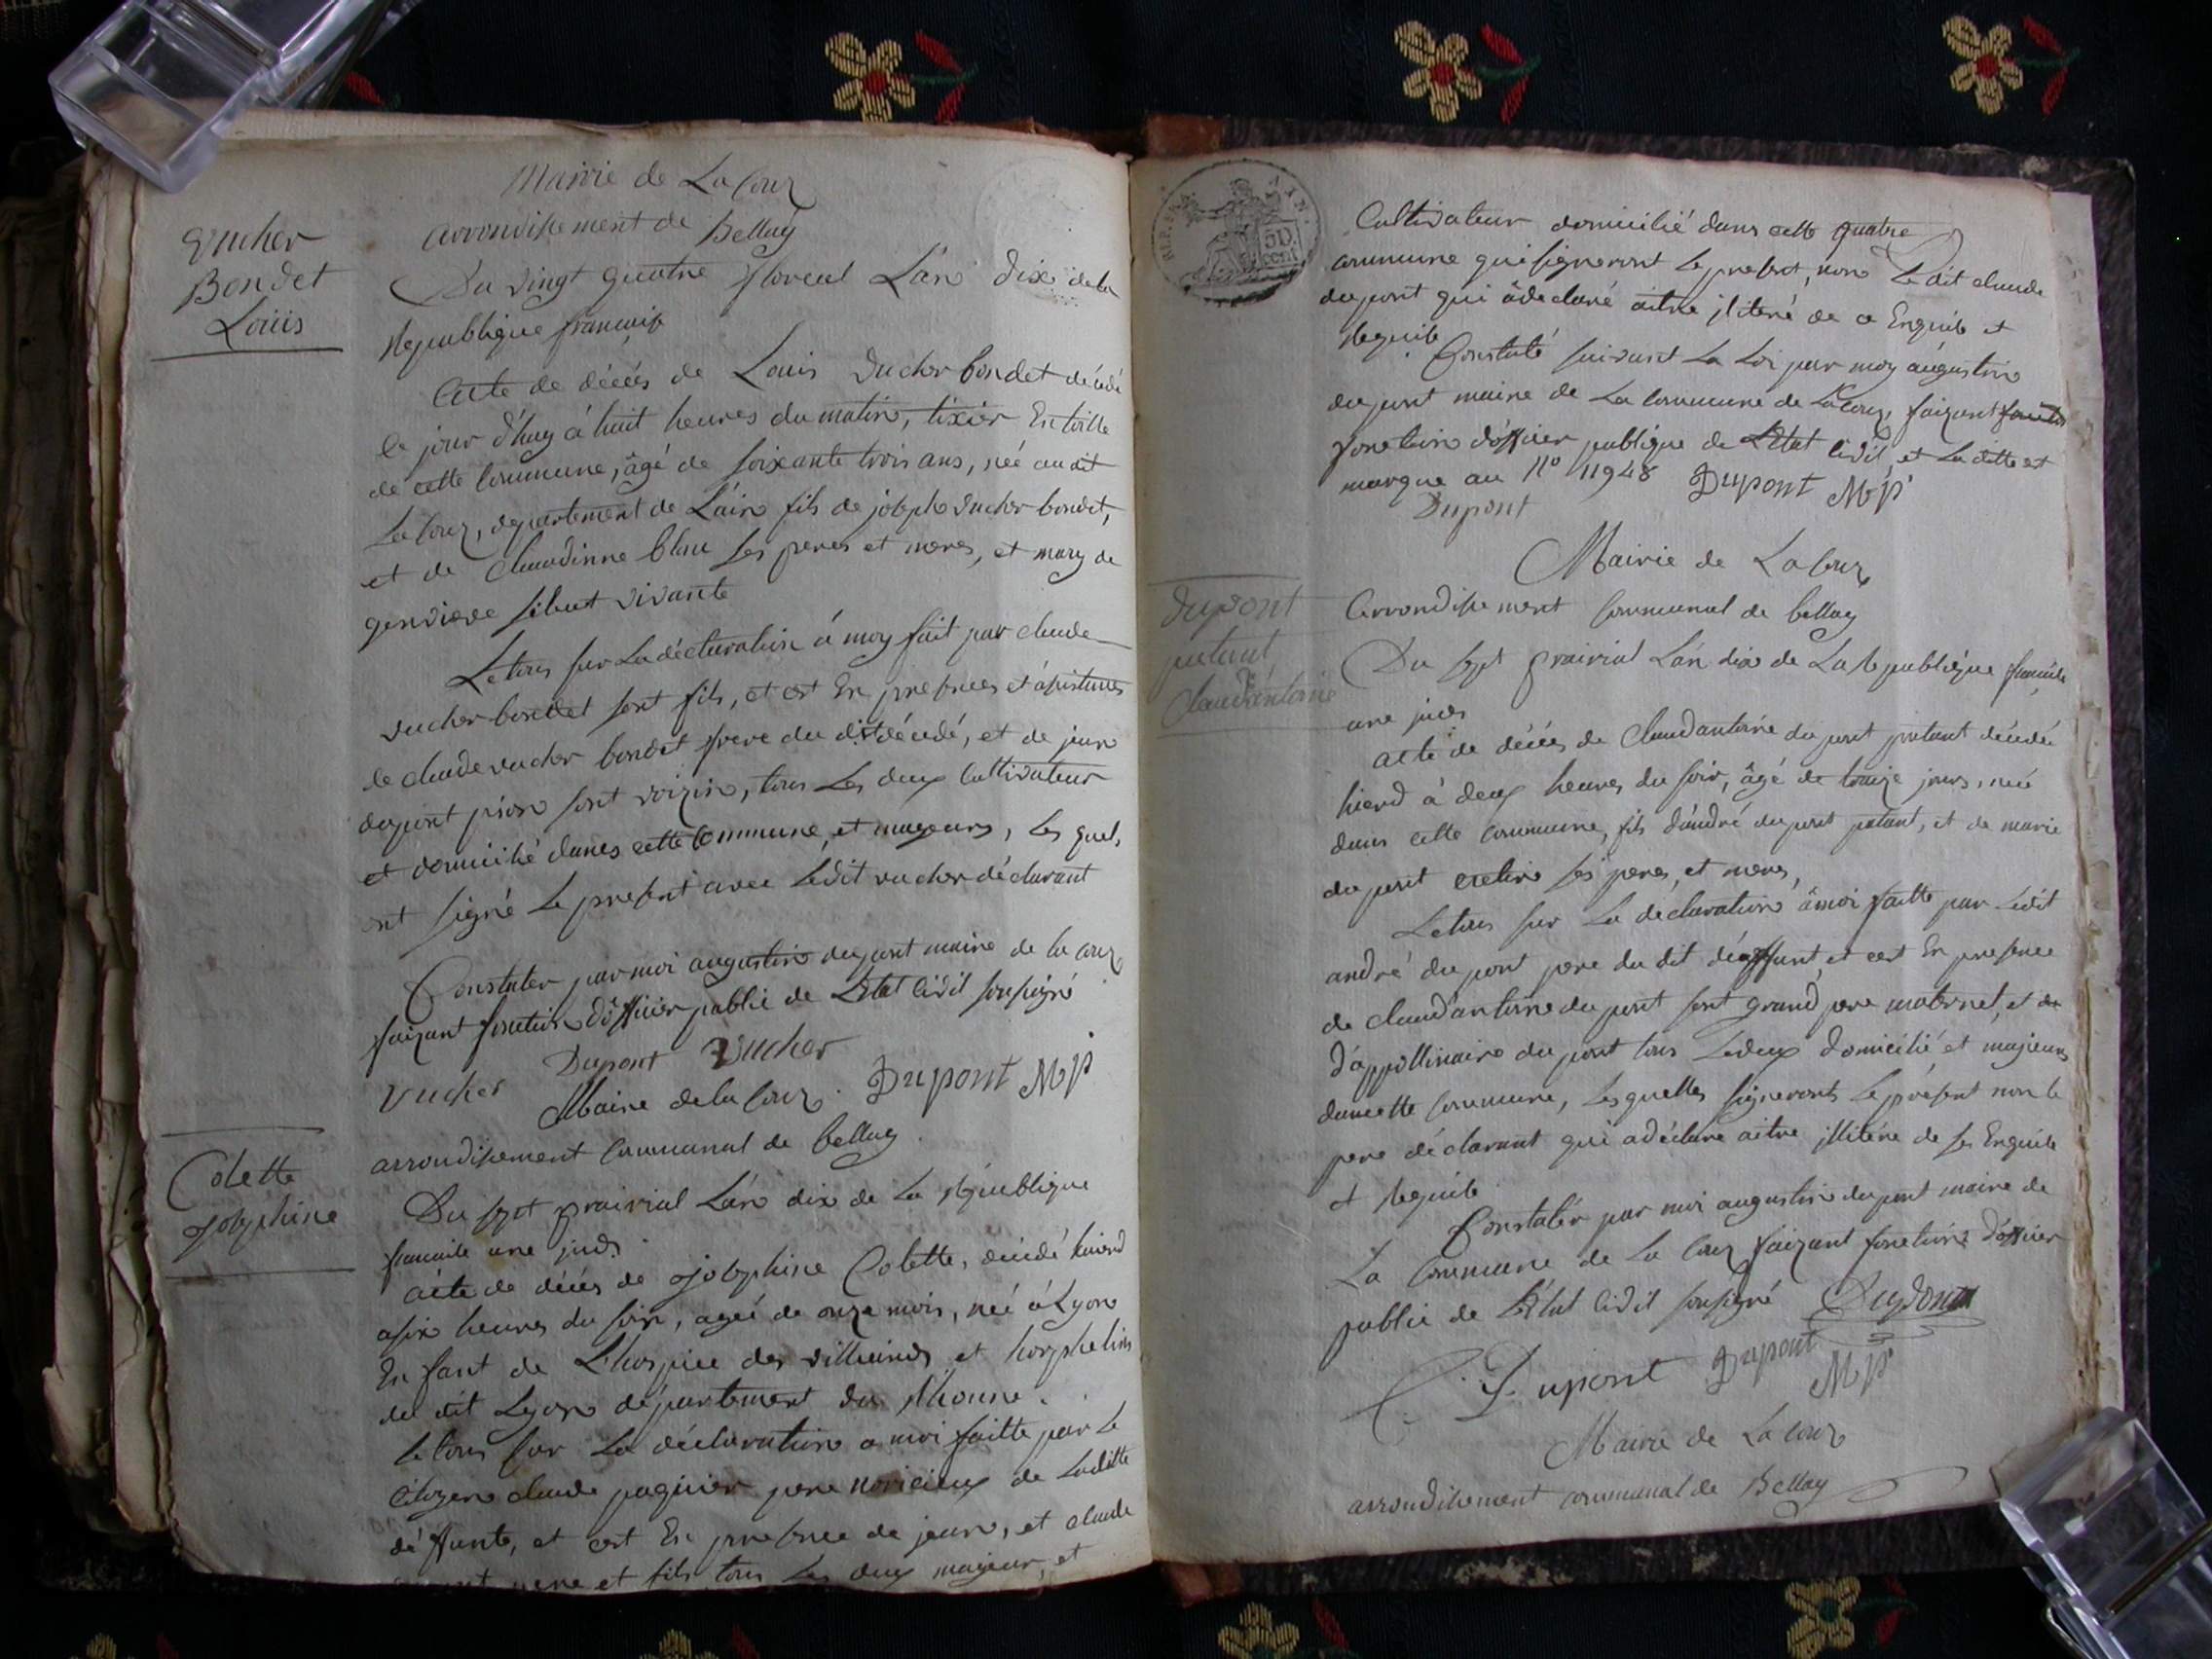 Mairie de La Coux
arrondissement de Belley
Vucher
Bondet
Louis
Du vingt quatre floreal L'an dix de la
Republique francaise
Acte de décés de Louis Vucher bondet décédé
ce jour d'huy à huit heures du matin, tixier En toille
de cette Commune, âgé de soixante trois ans, née audit
La Coux, departement de L'ain fils de joseph vucher bondet,
et de Claudinne blanc ses peres et meres, et mary de
genvieve vivante
Letous sur La déclaration à moy fait par claude
vucher bondet sont fils, et est En presences et
de claude vucher bondet frere du dit décédé, et de jean
dupont sont voizin, tous Les deux Cultivateur
et domicilié dans cette Commune, et mageurs, Les quel,
ont signé Le present avec Ledit vucher déclarant
Constater par moi augustin dupont maire de la coux
faizant fonction d'officier public de L'Etat Civil sousigné
Vucher Dupont Vucher
Maire de la Coux. Dupont Mp
arrondisement Communal de bellay
Colette
Josephine
Du sept prairial L'an dix de La Republique
francaise une
acte de décés de josephine Colette, décédé hierd
a six heures du soir, agée de onze mois, née à Lyon
Enfant de L'hospice des et horphelins
du dit Lyon département du Rhonne.
Letous sur La déclaration a moi faitte par Le
Citoyen claude pere noricieux de Laditte
déffunte, et est En presence de jean, et claude
pere et fils tous Les deux majeur, et
REP. FRA.
AIN.
50.
cent
Cultivateur domicilié dans cette quatre
commune qui signeront Le present, non Ledit claude
dupont qui à declaré aitre iliteré de ce Enquis et
Requis
Constaté suivant La Loi par moy augustin
dupont maire de La Commune de La Coux, faizant
fonction d'officier publique de L'Etat Civil, et La ditte est
marque au No 11948 Dupont Mp
Dupont
Mairie de La Coux
Arrondisement Communal de bellay
dupont
putant
Claud'antoine
Du sept prairial L'an dix de La Republique francaise
une
acte de décés de Claudantoine dupont putant décédé
hierd à deux heures du soir, âgé de jours, née
dans cette commune, fils d'andré dupont putant, et de marie
dupont cretin ses peres, et meres,
Letous sur La declaration à moi faitte par Ledit
andré dupont pere du dit déffunt, et est En presence
de claud'antoine dupont sont grand pere maternel, et de
d'appollinaire dupont tous Ledeux domicilié et majeurs
dans cette Commune, Lesquelles signeronts Le présent non le
pere déclarant qui adéclare aitre illitére de ses Enquis
et Requis
Constatér par moi augustin dupont maire de
La Commune de La Coux faizant fonction d'officier
public de L'Etat Civil sousigné Dupont
C. Dupont Dupont
Mp
Mairie de La Coux
arrondisement communal de Bellay